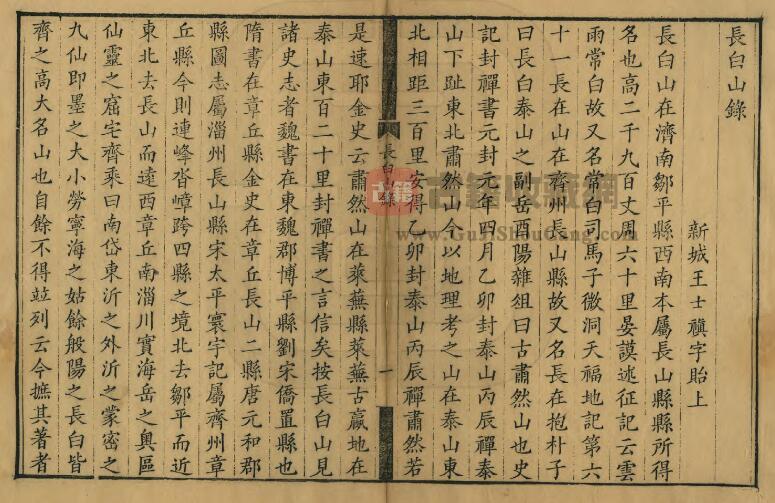 長白山錄
新城王士禛字貽上
長白山在濟南鄒平縣西南本屬長山縣縣所得
名也高二千九百丈周六十里晏謨述征記云雲
雨常白故又名常白司馬子微洞天福地記第六
十一長在山在齊州長山縣故又名長在抱朴子
曰長白泰山之副岳酉陽雜組曰古肅然山也史
記封禪書元封元年四月乙卯封泰山丙辰禪泰
山下趾東北肅然山今以地理考之山在泰山東
北相距三百里安得乙卯封泰山丙辰禪肅然若
長白山錄
一
是速耶金史云肅然山在萊蕪縣萊蕪古嬴地在
泰山東百二十里封禪書之言信矣按長白山見
諸史志者魏書在東魏郡博平縣劉宋僑置縣也
隋書在章丘縣金史在章丘長山二縣唐元和郡
縣圖志屬淄州長山縣宋太平寰宇記屬齊州章
丘縣今則連峰沓嶂跨四縣之境北去鄒平而近
東北去長山而遠西章丘南淄川實海岳之奧區
仙靈之窟宅齊乘曰南岱東沂之外沂之蒙密之
九仙即墨之大小勞寧海之姑餘般陽之長白皆
齊之高大名山也自餘不得竝列云今摭其著者
古籍
古籍收藏網
www.GujiShouCang.com